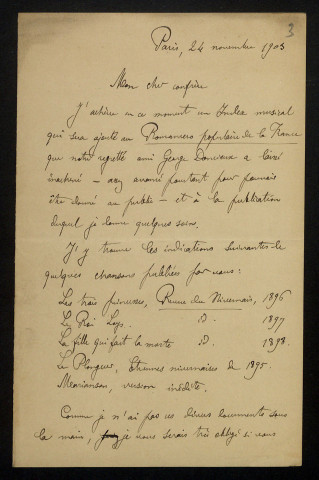 3
Paris, 24 novembre 1903
Mon cher confrère
J'achève en ce moment un Index musical
qui sera ajouté au Romancero populaire de la France
que notre regretté ami George Doncieux a laissé
inachevé – assez avancé pourtant pour pouvoir
être donné au public – et à la publication
duquel je donne quelques soins.
J'y trouve les indications suivantes de
quelques chansons publiées par vous:
Les trois princesses, Revue du Nivernais, 1896
Le Roi Loys. – id. 1897
La fille qui fait la morte id. 1898.
Le Plongeur, Etrennes nivernaises de 1895.
Marianson, version inédite.
Comme je n'ai pas ces divers documents sous
la main, je vous serais très obligé si vous